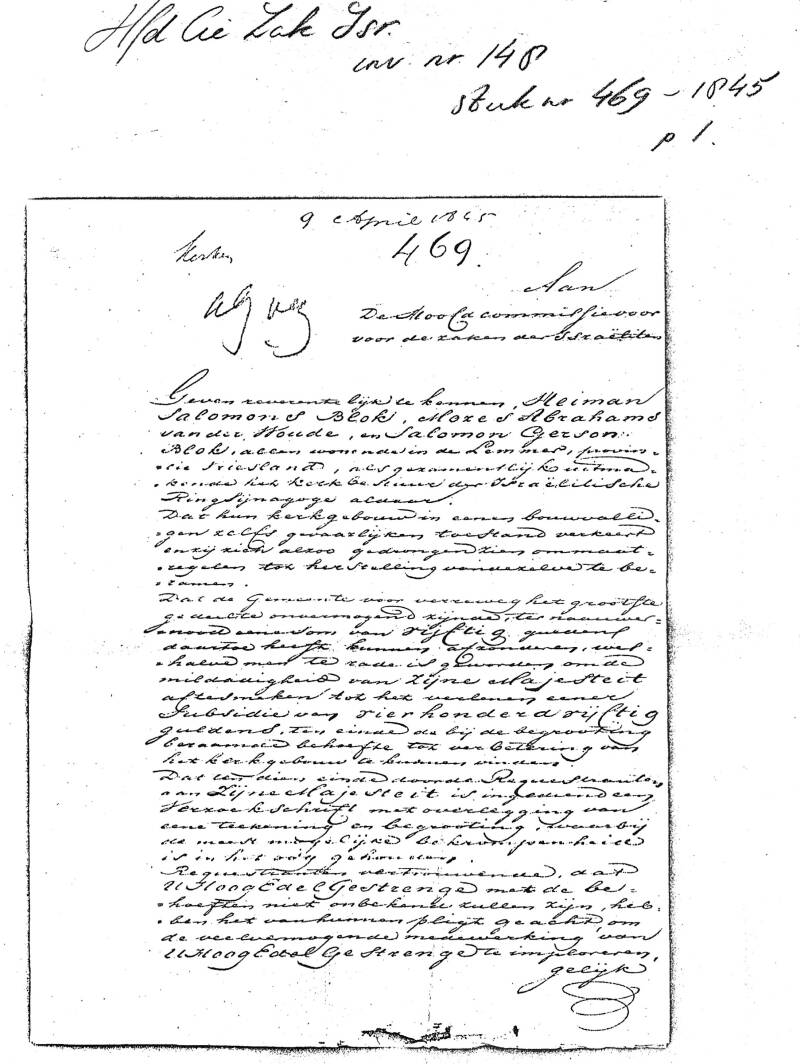 H/d Cie Zak Isr.
inv. nr. 148
stuk nr 469 - 1845
p 1.
9 April 1845
469.
Aan
De Hoofdcommissie voor
voor de zaken der Israëliten
Geven reverentelijk te kennen, Heiman
Salomons Blok, Mozes Abrahams
van der Woude, en Salomon Gerson
Blok, allen wonende in de Lemmer, provin-
cie Friesland, als gezamentlijk uitma-
kende het kerkbestuur der Israëlitische
Ringsijnagoge aldaar.
Dat hun kerkgebouw in eenen bouwvalli-
gen zelfs gevaarlijken toestand verkeert
en zij zich alzoo gedrongen zien om maat-
regelen tot herstelling van dezelve te be-
ramen.
Dat de Gemeente voor verreweg het grootste
gedeelte onvermogend zijnde, ter naauwer-
nood eene som van vijftig guldens
daartoe heeft kunnen afzonderen, wes-
halve men te rade is geworden om de
mildadigheid van Zijne Majesteit
aftesmeken tot het verleenen eener
Subsidie van vierhonderd vijftig
guldens, ten einde de bij de begrooting
beraamde behoefte tot verbetering van
het kerkgebouw te kunnen vinden.
Dat ten dien einde door de Requestranten
aan Zijne Majesteit is ingediend een
Verzoekschrift met overlegging van
eene teekening en begrooting, waarbij
de meest mogelijke bekrompenheid
is in het oog gehouden.
Requestranten vertrouwende, dat
U HoogEdelGestrenge met de be-
hoeften niet onbekend zullen zijn, heb-
ben het van hunnen pligt geacht, om
de veelvermogende medewerking van
U HoogEdelGestrenge te imploreren,
gelijk